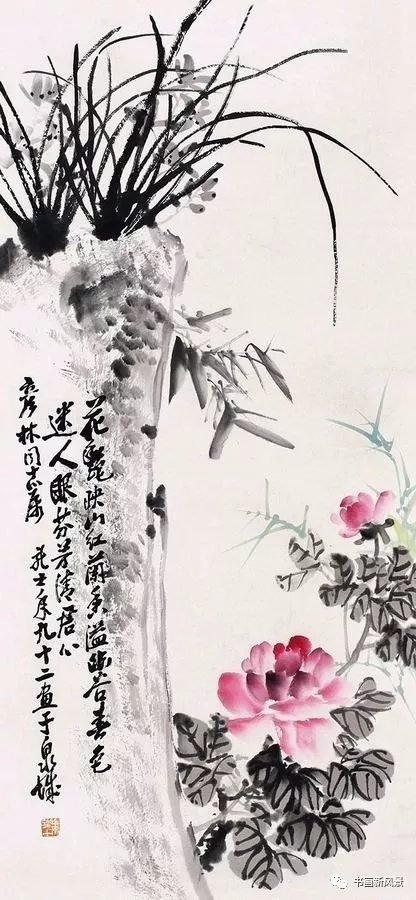 花艷映山红蘭香溢幽谷春色
迷人眼芬芳清心
林同志属
士年九十二画于泉城
书画新风景